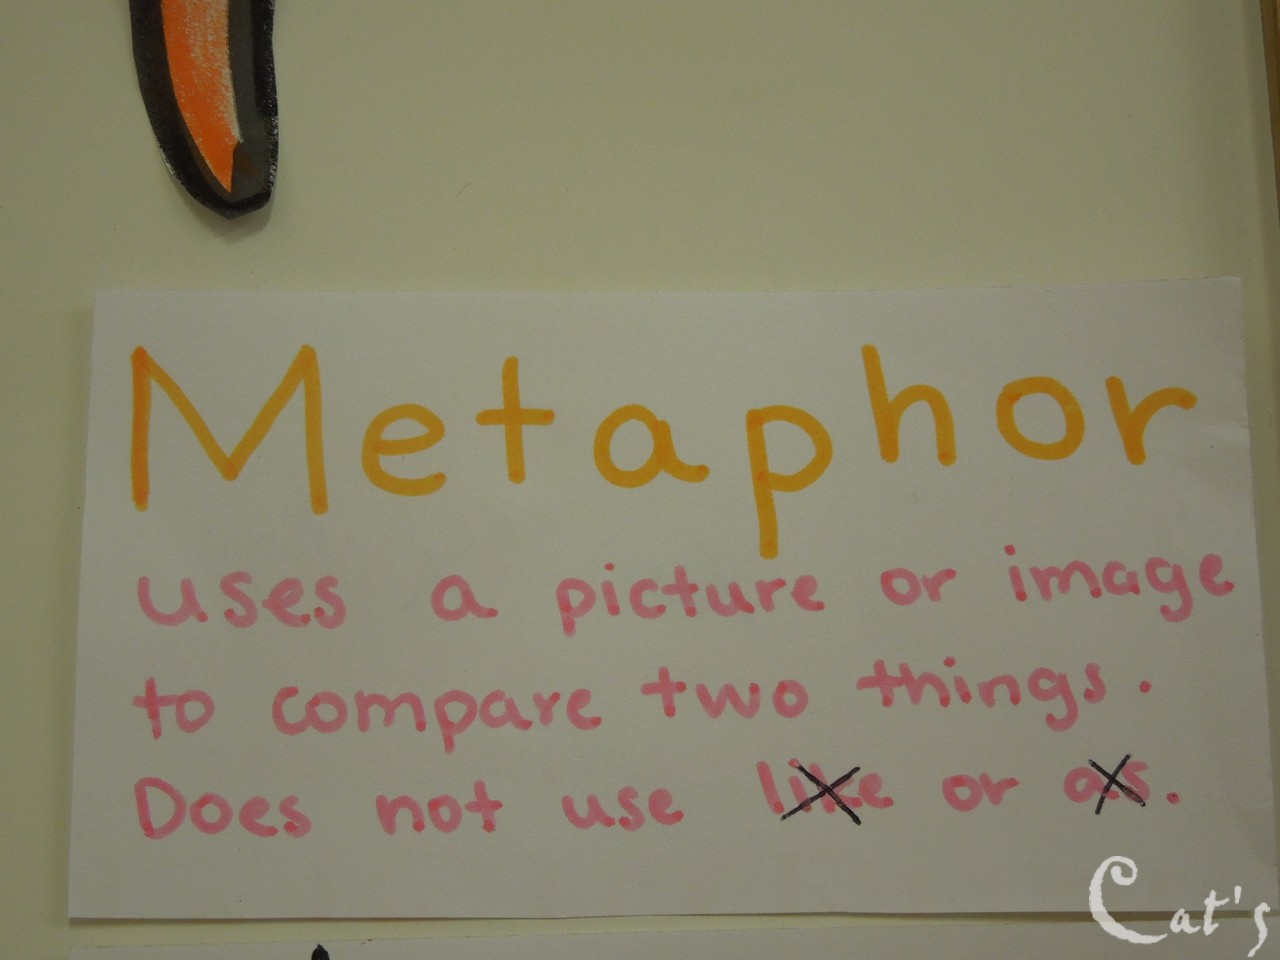 Metaphor
uses a picture or image
to compare two things.
Does not use like or as.
Cat's